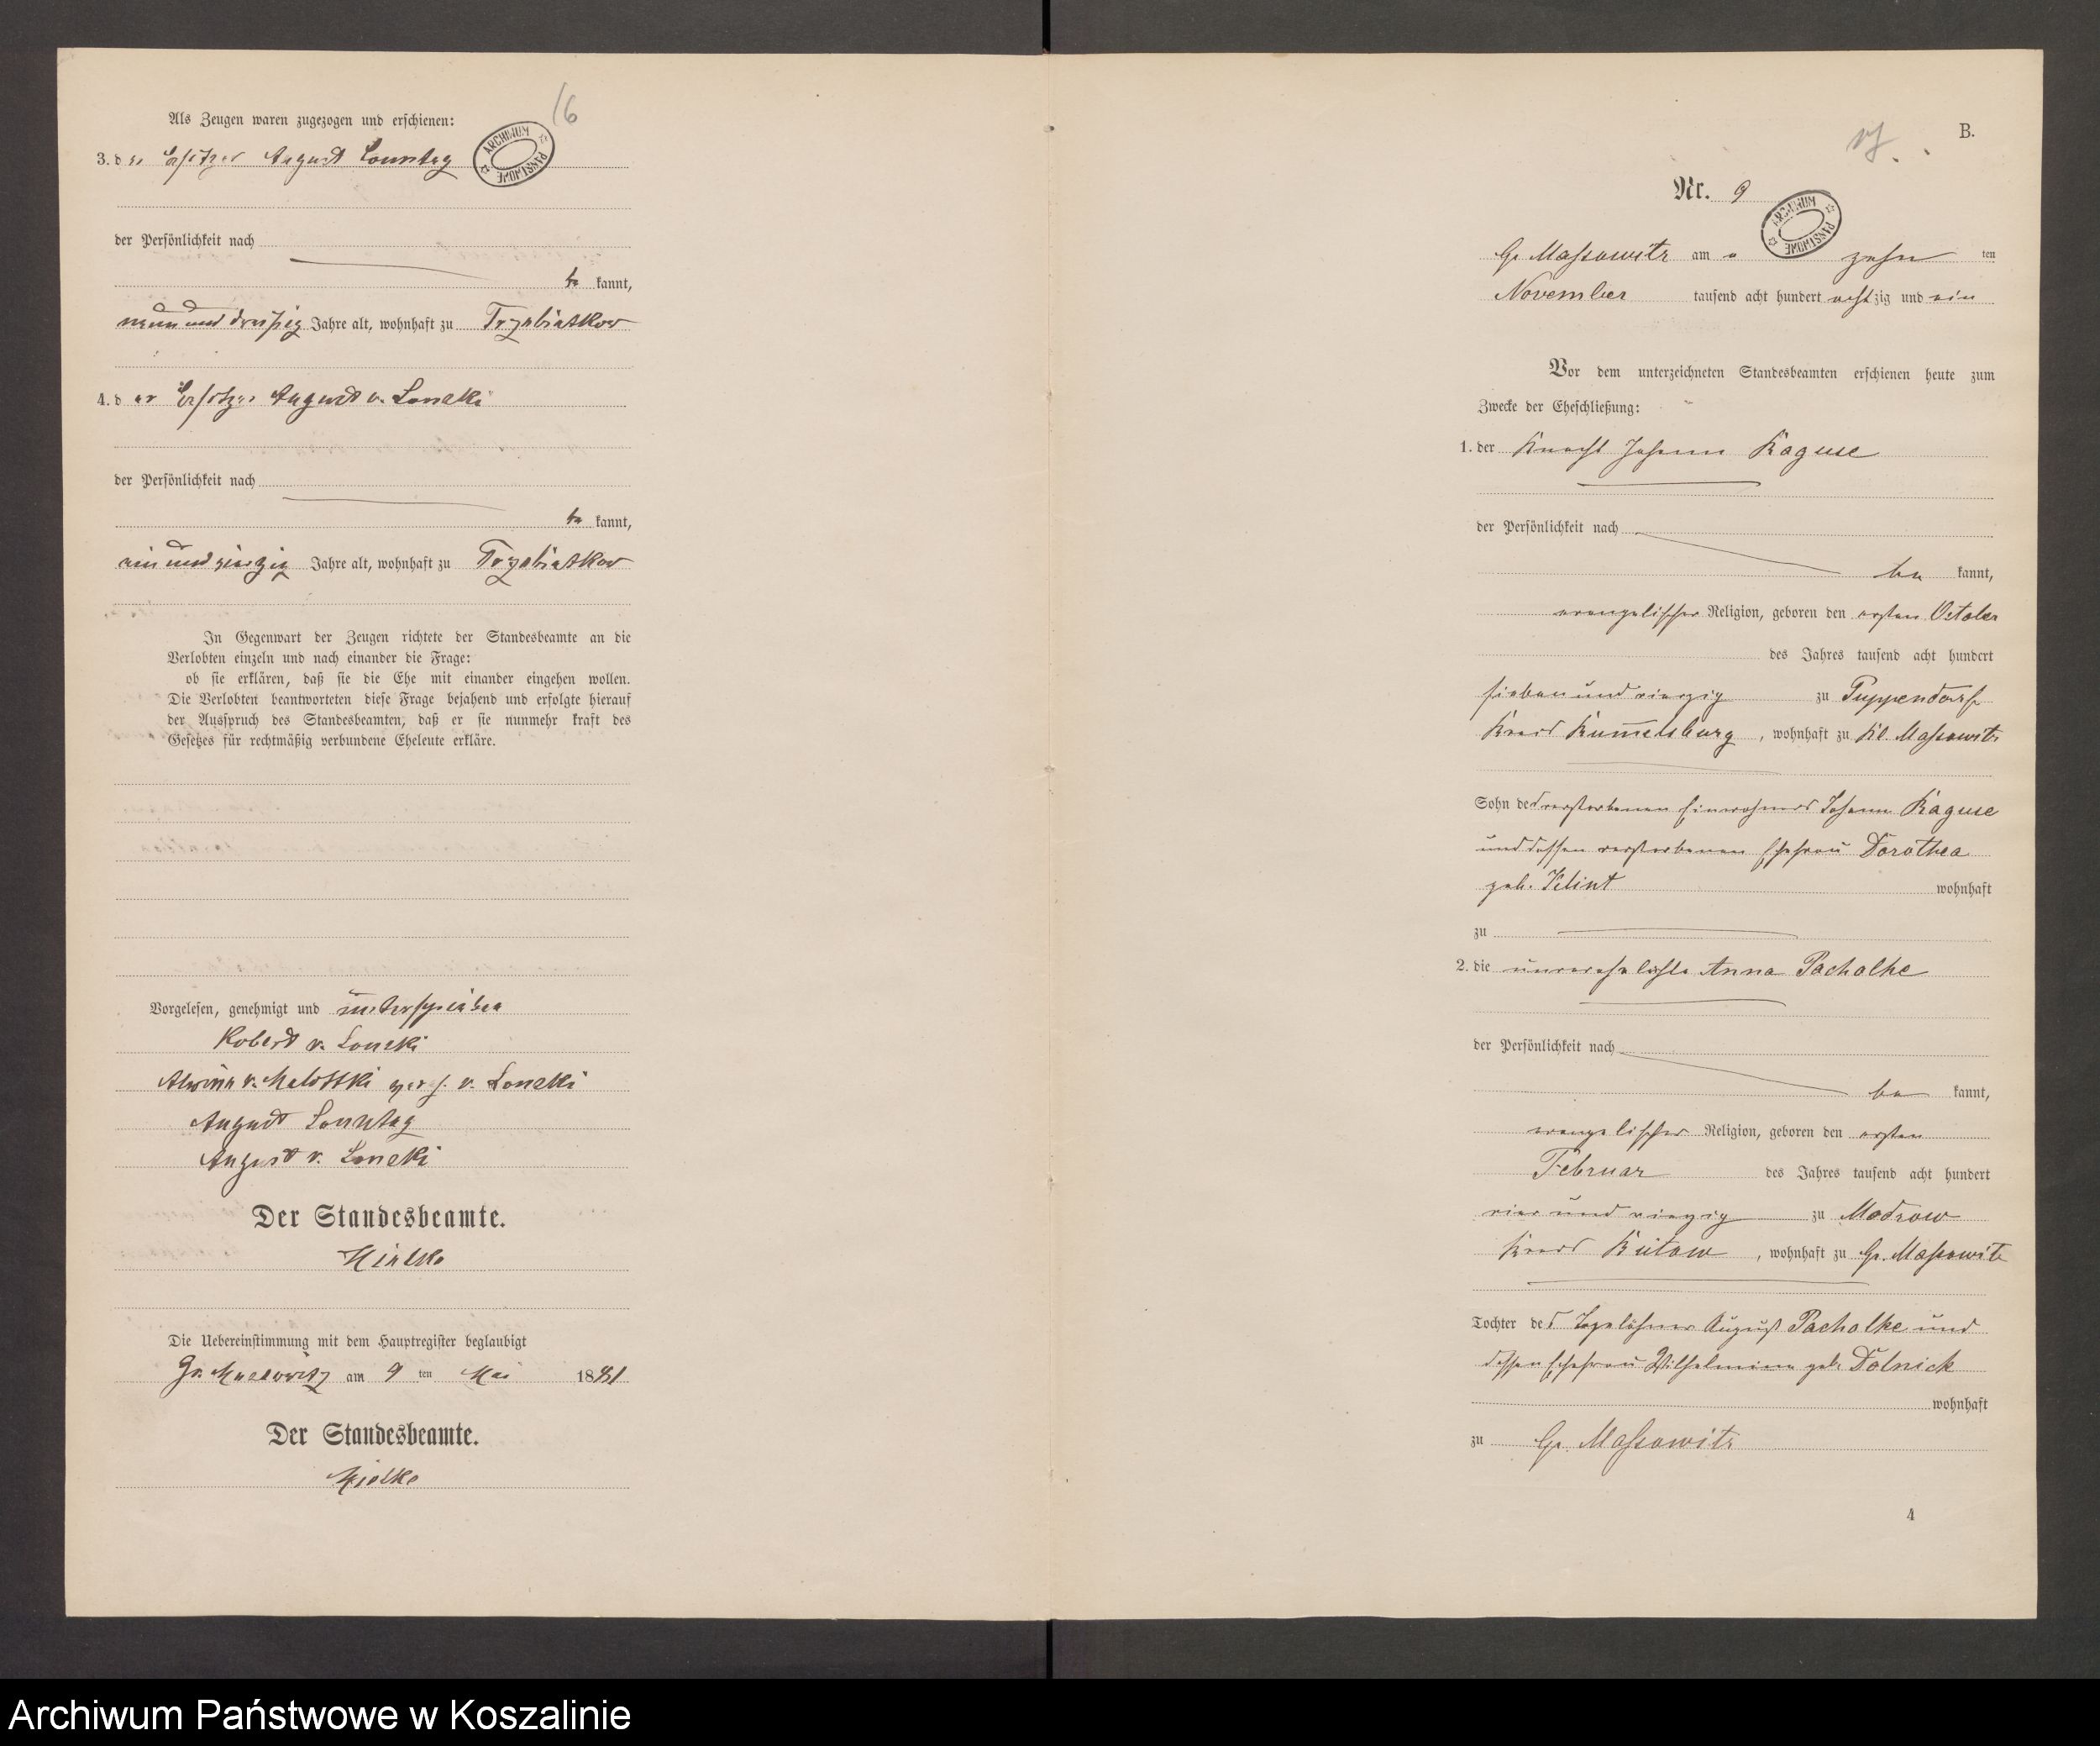 16
Als Zeugen waren zugezogen und erschienen:
ARCHIWUM PAŃSTWOWE
3. der Besitzer August Sonntag
der Persönlichkeit nach
be kannt,
neun und dreißig Jahre alt, wohnhaft zu Trzebiatkow
4. der Besitzer August v. Lonski
der Persönlichkeit nach
be kannt,
ein und vierzig Jahre alt, wohnhaft zu Trzebiatkow
In Gegenwart der Zeugen richtete der Standesbeamte an die
Verlobten einzeln und nach einander die Frage:
ob sie erklären, daß sie die Ehe mit einander eingehen wollen.
Die Verlobten beantworteten diese Frage bejahend und erfolgte hierauf
der Ausspruch des Standesbeamten, daß er sie nunmehr kraft des
Gesetzes für rechtmäßig verbundene Eheleute erkläre.
Vorgelesen, genehmigt und unterschrieben
Robert v. Lonski
Alwine v. Malottki v. Lonski
August Sonntag
August v. Lonski
Der Standesbeamte.
Mielke
Die Uebereinstimmung mit dem Hauptregister beglaubigt
Gr. Massowitz am 9 ten Mai 1881
Der Standesbeamte.
Mielke
17
B.
Nr. 9
ARCHIWUM PAŃSTWOWE
Gr. Massowitz am zehn ten
November tausend acht hundert achtzig und ein
Vor dem unterzeichneten Standesbeamten erschienen heute zum
Zwecke der Eheschließung:
1. der Knecht Johann Raguse
der Persönlichkeit nach
be kannt,
evangelischer Religion, geboren den ersten October
des Jahres tausend acht hundert
sieben und vierzig zu Puppendorf
Kreis Rummelsburg, wohnhaft zu Kl. Massowitz
Sohn des verstorbenen Einwohners Johann Raguse
und dessen verstorbenen Ehefrau Dorothea
geb. Klint wohnhaft
zu
2. die unverehelichte Anna Pacholke
der Persönlichkeit nach
be kannt,
evangelischer Religion, geboren den ersten
Februar des Jahres tausend acht hundert
vier und vierzig zu Modrow
Kreis Bütow, wohnhaft zu Gr. Massowitz
Tochter des Tagelöhner August Pacholke und
dessen Ehefrau Wilhelmine geb. Dolnick
wohnhaft
zu Gr. Massowitz
4
Archiwum Państwowe w Koszalinie